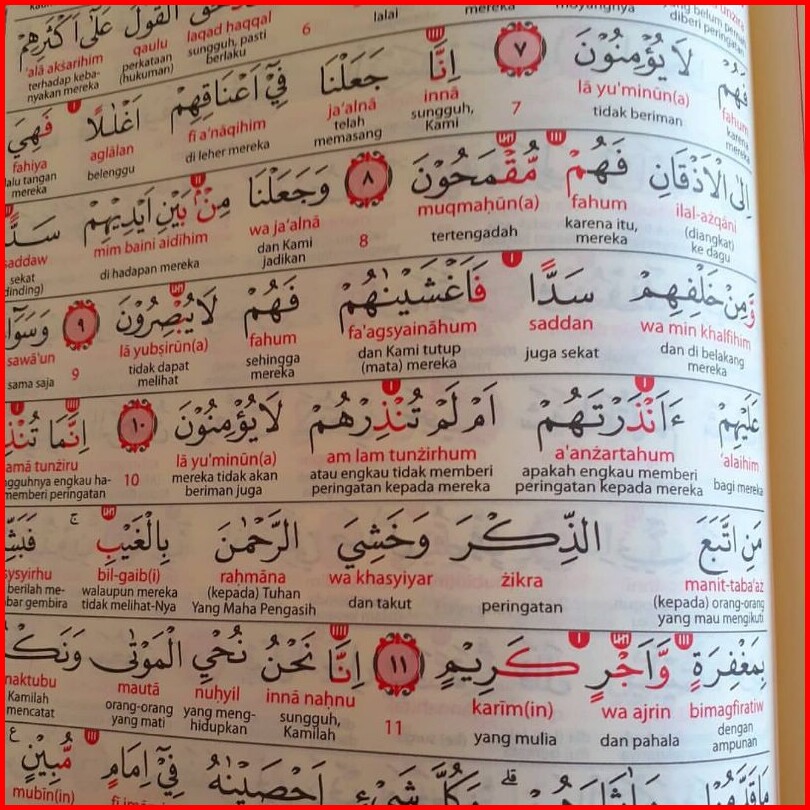 الْقَوْلُ عَلٰٓى اَكْثَرِهِمْ
laqad haqqal qaulu 'alā akṡarihim
6 sungguh, pasti berlaku perkataan (hukuman) terhadap keba-nyakan mereka
lalai mereka
diberi peringatan
فَهُمْ لَا يُؤْمِنُوْنَ ٧ اِنَّا جَعَلْنَا فِيْٓ اَعْنَاقِهِمْ اَغْلٰلًا فَهِيَ
fahum lā yu'minūn(a) innā ja'alnā fī a'nāqihim aglālan fahiya
karena mereka tidak beriman 7 sungguh, Kami telah memasang di leher mereka belenggu lalu tangan mereka
اِلَى الْاَذْقَانِ فَهُمْ مُّقْمَحُوْنَ ٨ وَجَعَلْنَا مِنْۢ بَيْنِ اَيْدِيْهِمْ سَدًّا
ilal-ażqāni fahum muqmaḥūn(a) wa ja'alnā mim baini aidihim saddaw
(diangkat) ke dagu karena itu, mereka tertengadah 8 dan Kami jadikan di hadapan mereka sekat (dinding)
وَّمِنْ خَلْفِهِمْ سَدًّا فَاَغْشَيْنٰهُمْ فَهُمْ لَا يُبْصِرُوْنَ ٩ وَسَوَاۤءٌ
wa min khalfihim saddan fa'agsyaināhum fahum lā yubṣirūn(a) sawā'un
dan di belakang mereka juga sekat dan Kami tutup (mata) mereka sehingga mereka tidak dapat melihat 9 sama saja
عَلَيْهِمْ ءَاَنْذَرْتَهُمْ اَمْ لَمْ تُنْذِرْهُمْ لَا يُؤْمِنُوْنَ ١٠ اِنَّمَا تُنْذِ
'alaihim a'anżartahum am lam tunżirhum lā yu'minūn(a) amā tunżiru
bagi mereka apakah engkau memberi peringatan kepada mereka atau engkau tidak memberi peringatan kepada mereka mereka tidak akan beriman juga 10 gguhnya engkau ha-memberi peringatan
مَنِ اتَّبَعَ الذِّكْرَ وَخَشِيَ الرَّحْمٰنَ بِالْغَيْبِۚ فَبَشِّ
manit-taba'aż żikra wa khasyiyar raḥmāna bil-gaib(i) syirhu
(kepada) orang-orang yang mau mengikuti peringatan dan takut (kepada) Tuhan Yang Maha Pengasih walaupun mereka tidak melihat-Nya berilah me-bar gembira
بِمَغْفِرَةٍ وَّاَجْرٍ كَرِيْمٍ ١١ اِنَّا نَحْنُ نُحْيِ الْمَوْتٰى وَنَكْ
bimagfiratiw wa ajrin karīm(in) innā naḥnu nuḥyil mautā naktubu
dengan ampunan dan pahala yang mulia 11 sungguh, Kamilah yang meng-hidupkan orang-orang yang mati Kamilah mencatat
مَا قَدَّمُوْا وَاٰثَارَهُمْۗ وَكُلَّ شَيْءٍ اَحْصَيْنٰهُ فِيْٓ اِمَامٍ مُّبِيْنٍ
mubīn(in)